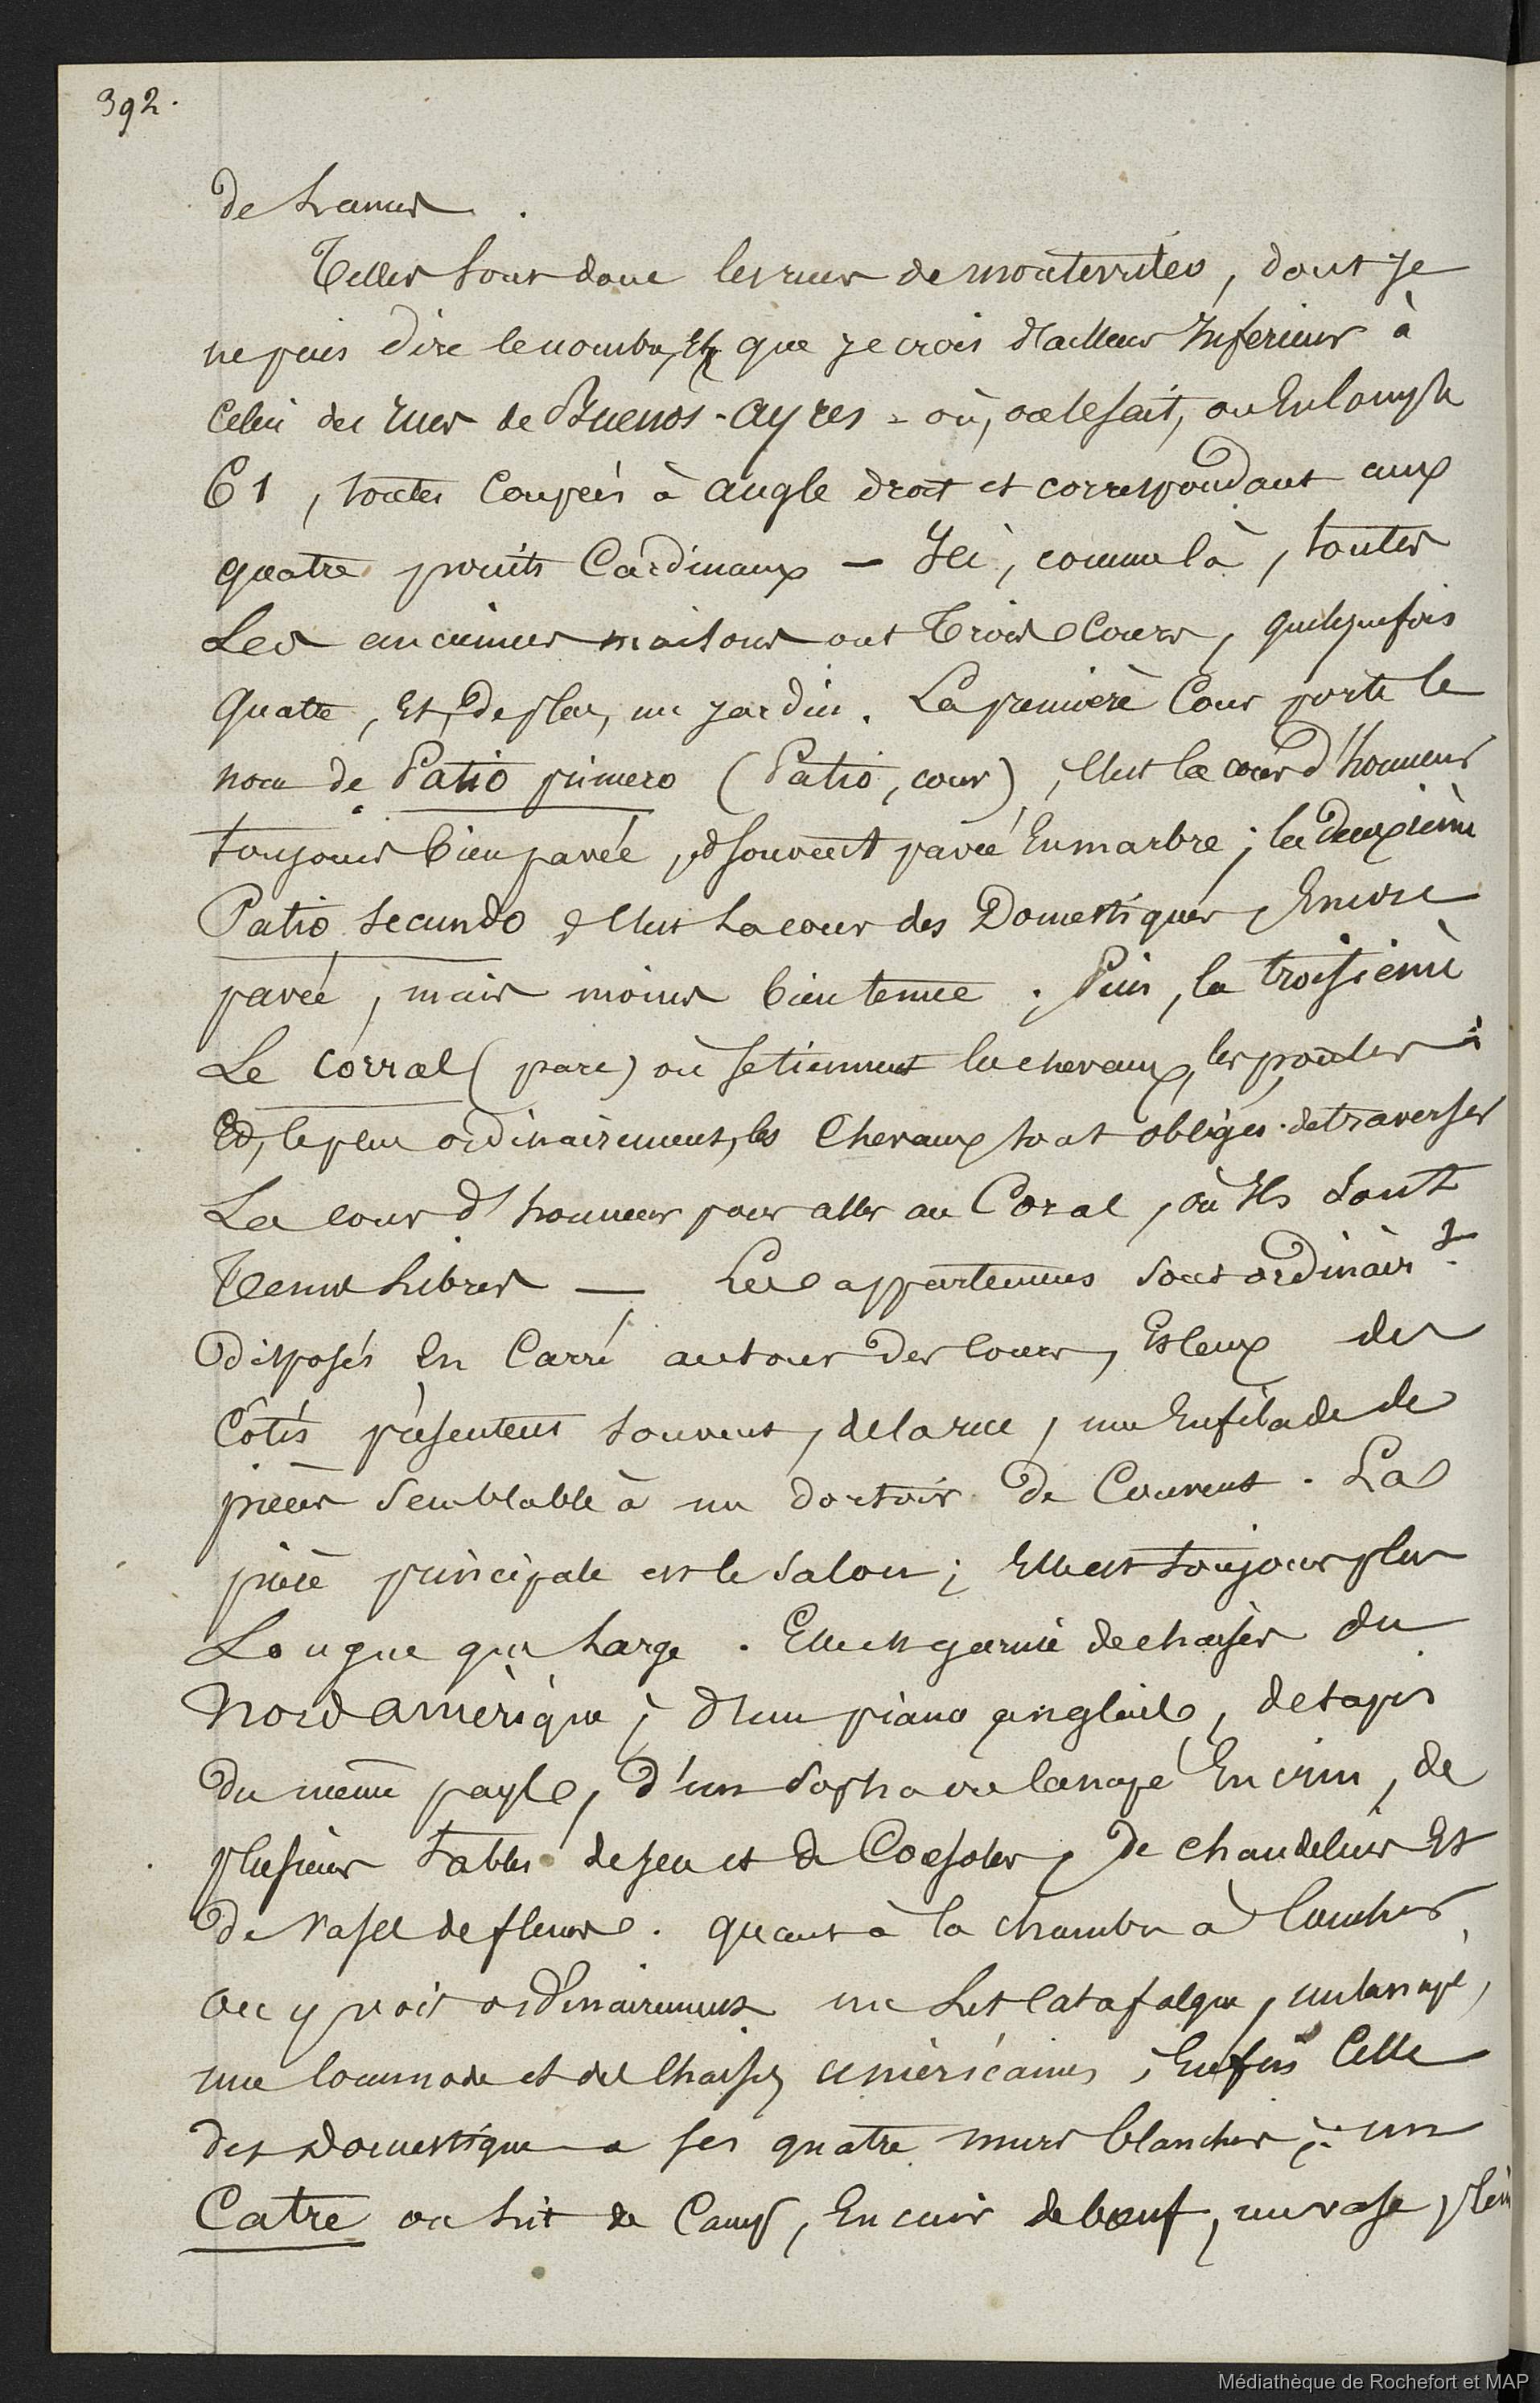 392.
de
Telles sont donc les rues de montevideo, dont je
ne puis dire le nombre, Et que je crois d'ailleurs Inferieur à
Celui des rues de Buenos-ayres - où, on le sait, on En compte
61, toutes coupées à angle droit et correspondant aux
quatre points Cardinaux — Ici, comme là, toutes
Les anciennes maisons ont Trois Cours, quelquefois
quatre, Et, de plus, un jardin. La première Cour porte le
nom de Patio primero (Patio, cour), c'est la cour d'honneur
toujours bien pavée, et souvent pavée En marbre ; la deuxième
Patio secundo, c'est La cour des Domestiques, Encore
pavée, mais moins bien tenue. Puis, la troisième
Le corral (parc) où se tiennent les chevaux, les poules
Et, le plus ordinairement, les Chevaux sont obligés de traverser
La cour d'honneur pour aller au Coral, où Ils sont
Tenus libres — Les appartemens sont ordinairt
disposés En Carré autour des cours, Et ceux des
Côtés présentent souvent, de la rue, une Enfilade de
pièces semblable à un dortoir de Couvent. La
pièce principale est le salon ; Elle est toujours plus
Longue que large. Elle est garnie de chaises du
Nord amérique ; d'un piano anglais, de tapis
du même pays, d'un sopha ou canapé En crin, de
plusieurs tables de jeu et de Consoles, de chandeliers Et
de vases de fleurs. quant à la chambre à Coucher
on y voit ordinairement un Lit Catafalque, un canapé,
une commode et des Chaises américaines ; Enfin Celle
des domestiques a ses quatre murs blanchis, un
Catre ou lit de Camp, En cuir de boeuf, un vase plein
Médiathèque de Rochefort et MAP